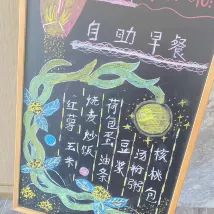 自助早餐
核桃包
汤粉粥
豆浆
荷包蛋 油条
烧麦 炒饭
红薯 玉米